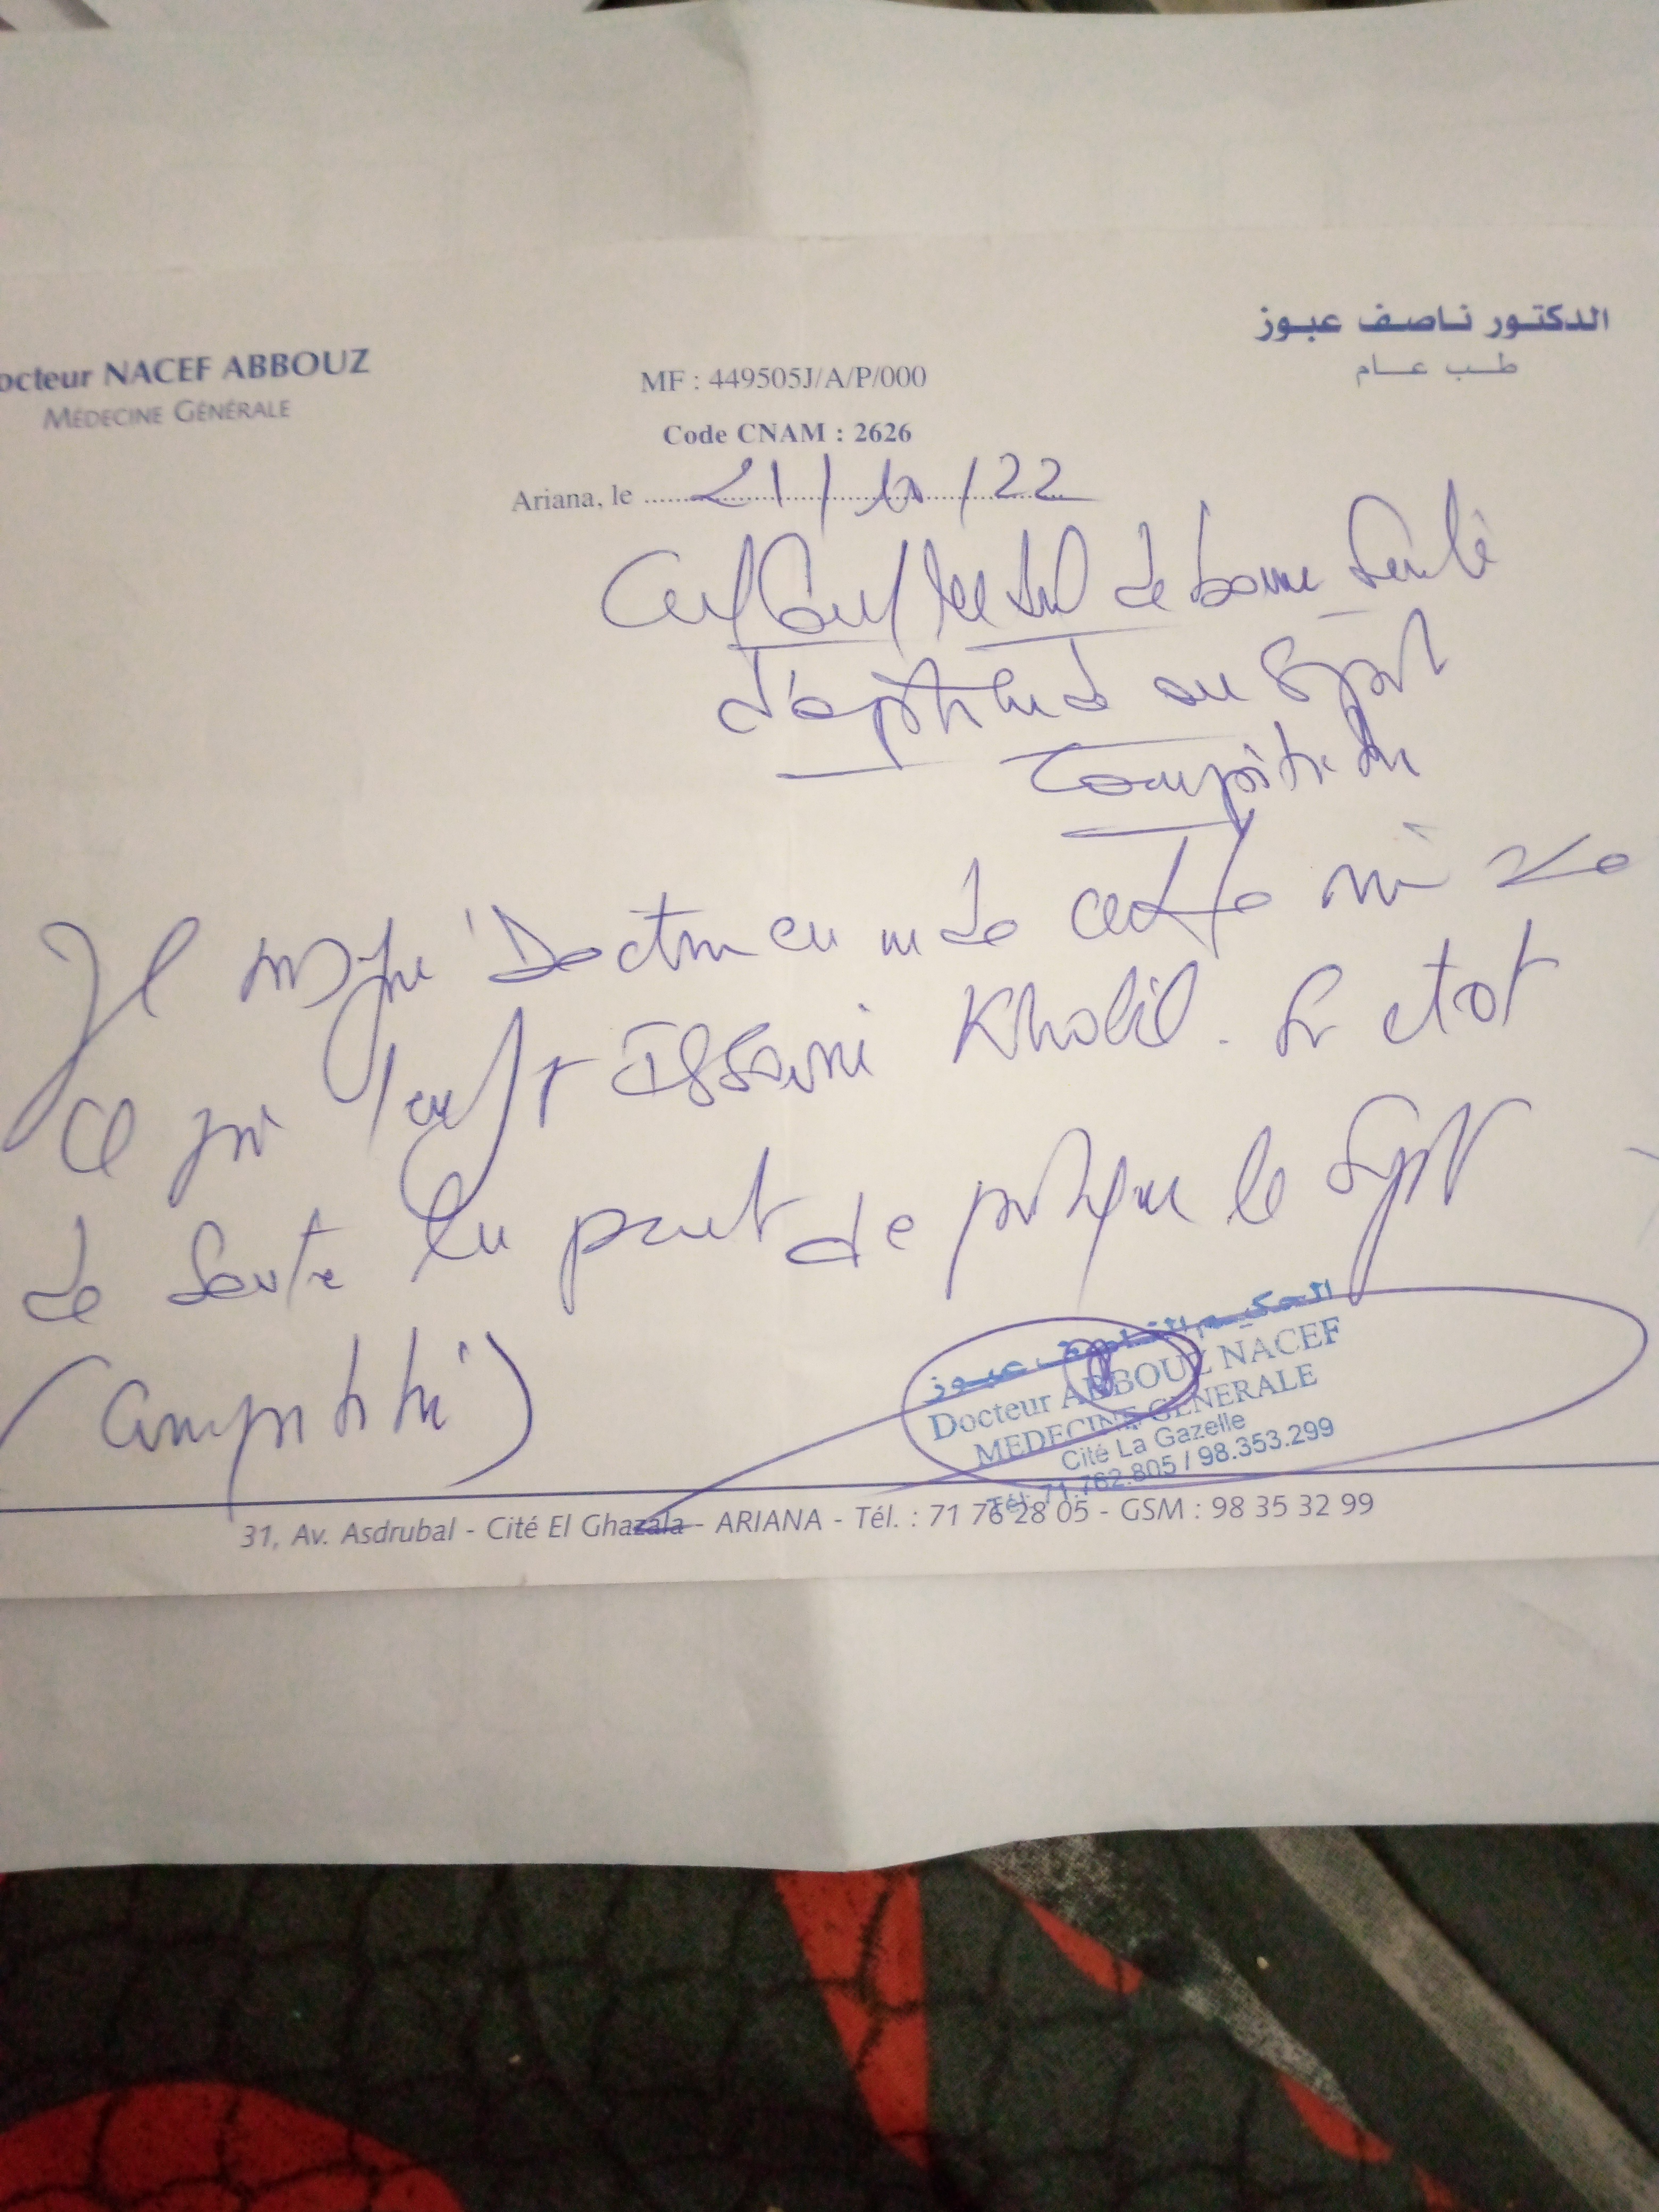 octeur NACEF ABBOUZ
MÉDECINE GÉNÉRALE
الدكتور ناصف عبوز
طب عام
MF : 449505J/A/P/000
Code CNAM : 2626
Ariana, le 21/10/22
de bonne Santé
d'aptitude au Sport
Compétition
Je Docteur en certifie
ce jour Issaoui Khalil. Son etat
de Sante lui permet de pratiquer le Sport
(Compétitif)
الحكيم الناصف عبوز
Docteur ABBOUZ NACEF
MEDECINE GENERALE
Cité La Gazelle
Tél: 71.762.805 / 98.353.299
31, Av. Asdrubal - Cité El Ghazala - ARIANA - Tél. : 71 76 28 05 - GSM : 98 35 32 99